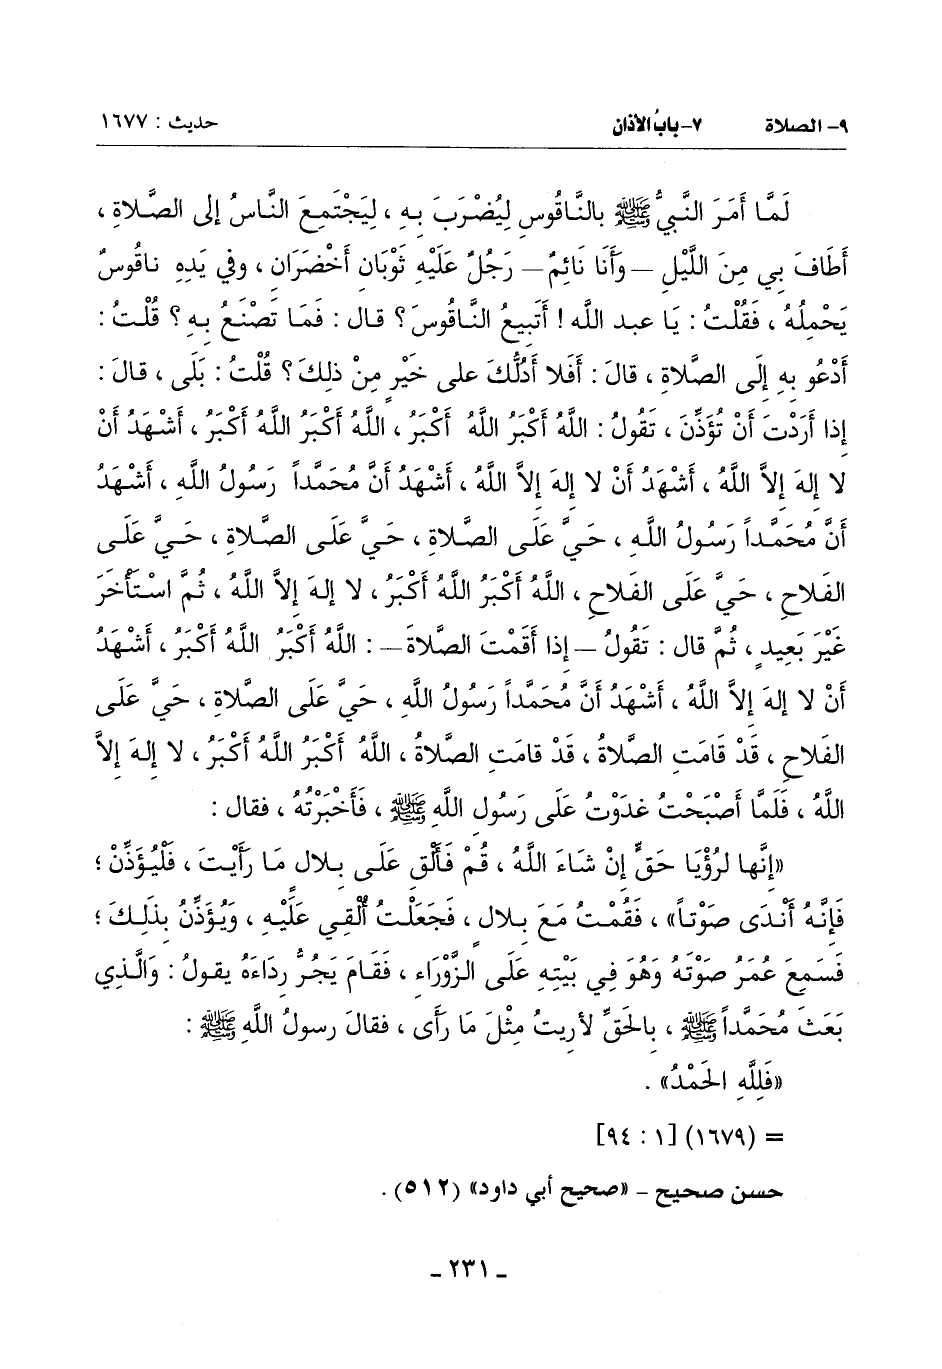 ٩- الصلاة ٧- بابُ الأذان حديث : ١٦٧٧
لَمَّا أَمَرَ النَّبِيُّ ﷺ بالنَّاقُوسِ لِيُضْرَبَ بِهِ ، لِيَجْتَمِعَ النَّاسُ إلى الصَّلاةِ ،
أَطَافَ بِي مِنَ اللَّيْلِ –وأَنا نائِمٌ– رَجُلٌ عَلَيْهِ ثَوْبَانِ أَخْضَرَانِ ، وفي يَدِهِ ناقُوسٌ
يَحْمِلُهُ ، فَقُلْتُ : يَا عبد اللَّه ! أَتَبِيعُ النَّاقُوسَ؟ قال : فَمَا تَصْنَعُ بِهِ ؟ قُلْتُ :
أَدْعُو بِهِ إِلَى الصَّلاةِ ، قالَ : أَفَلا أَدُلُّكَ على خَيْرٍ مِنْ ذلِكَ؟ قُلْتُ : بَلَى ، قالَ :
إذا أَرَدْتَ أَنْ تُؤَذِّنَ ، تَقُولُ : اللَّهُ أَكْبَرُ اللَّهُ أَكْبَرُ ، اللَّهُ أَكْبَرُ اللَّهُ أَكْبَرُ ، أَشْهَدُ أَنْ
لا إلهَ إلاَّ اللَّهُ ، أَشْهَدُ أَنْ لا إلهَ إلاَّ اللَّهُ ، أَشْهَدُ أَنَّ مُحَمَّداً رَسُولُ اللَّهِ ، أَشْهَدُ
أَنَّ مُحَمَّداً رَسُولُ اللَّهِ ، حَيَّ عَلَى الصَّلاةِ ، حَيَّ عَلَى الصَّلاةِ ، حَيَّ عَلَى
الفَلاحِ ، حَيَّ عَلَى الفَلاحِ ، اللَّهُ أَكْبَرُ اللَّهُ أَكْبَرُ ، لا إلهَ إلاَّ اللَّهُ ، ثُمَّ اسْتَأْخَرَ
غَيْرَ بَعِيدٍ ، ثُمَّ قال : تَقُولُ –إذا أَقَمْتَ الصَّلاةَ– : اللَّهُ أَكْبَرُ اللَّهُ أَكْبَرُ ، أَشْهَدُ
أَنْ لا إلهَ إلاَّ اللَّهُ ، أَشْهَدُ أَنَّ مُحَمَّداً رَسُولُ اللَّهِ ، حَيَّ عَلَى الصَّلاةِ ، حَيَّ عَلَى
الفَلاحِ ، قَدْ قَامَتِ الصَّلاةُ ، قَدْ قامَتِ الصَّلاةُ ، اللَّهُ أَكْبَرُ اللَّهُ أَكْبَرُ ، لا إلهَ إلاَّ
اللَّهُ ، فَلَمَّا أَصْبَحْتُ غَدَوْتُ عَلَى رَسُولِ اللَّهِ ﷺ ، فَأَخْبَرْتُهُ ، فقال :
«إِنَّها لَرُؤْيَا حَقٌّ إنْ شَاءَ اللَّهُ ، قُمْ فَأَلْقِ عَلَى بِلالٍ مَا رَأَيْتَ ، فَلْيُؤَذِّنْ ؛
فَإِنَّهُ أَنْدَى صَوْتاً» ، فَقُمْتُ مَعَ بِلالٍ ، فَجَعَلْتُ أُلْقِي عَلَيْهِ ، وَيُؤَذِّنُ بِذَلِكَ ؛
فَسَمِعَ عُمَرُ صَوْتَهُ وَهُوَ فِي بَيْتِهِ عَلَى الزَّوْرَاءِ ، فَقَامَ يَجُرُّ رِدَاءَهُ يقولُ : وَالَّذِي
بَعَثَ مُحَمَّداً ﷺ ، بالحَقِّ لأُريتُ مِثْلَ مَا رَأَى ، فقالَ رسولُ اللَّهِ ﷺ :
«فَلِلَّهِ الحَمْدُ» .
= (١٦٧٩) [١ : ٩٤]
حسن صحيح – «صحيح أبي داود» (٥١٢) .
ـ ٢٣١ ـ